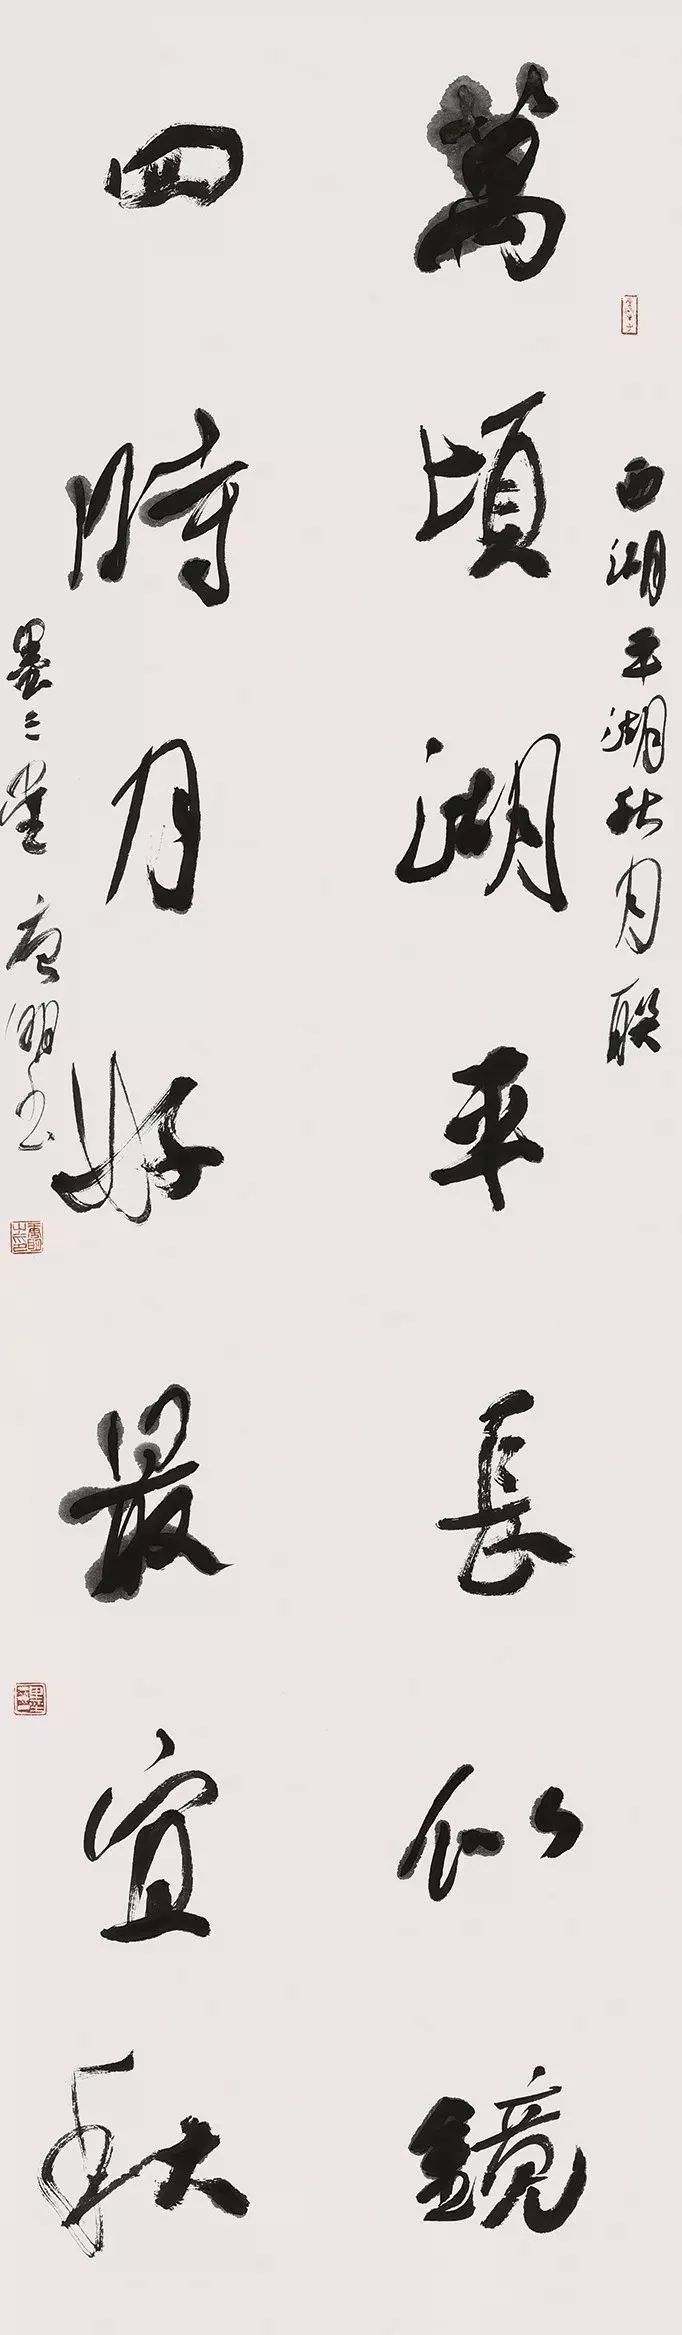 西湖平湖秋月联
萬頃湖平長似鏡
四時月好最宜秋
墨墨堂唐朝書